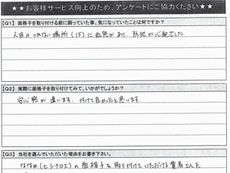 ★★お客様サービス向上のため、アンケートにご協力ください★★
【Q1】面格子を取り付ける前に困っていた事、気になっていたことは何ですか?
人目のつかない場所(1F)に出窓があり、防犯が心配でした
【Q2】実際に面格子を取り付けてみて、いかがでしょうか?
安心感が違います。付けて良かったと思います。
【Q3】当社を選んでいただいた理由をお書き下さい。
の面格子を取り付けていただける業者さんを